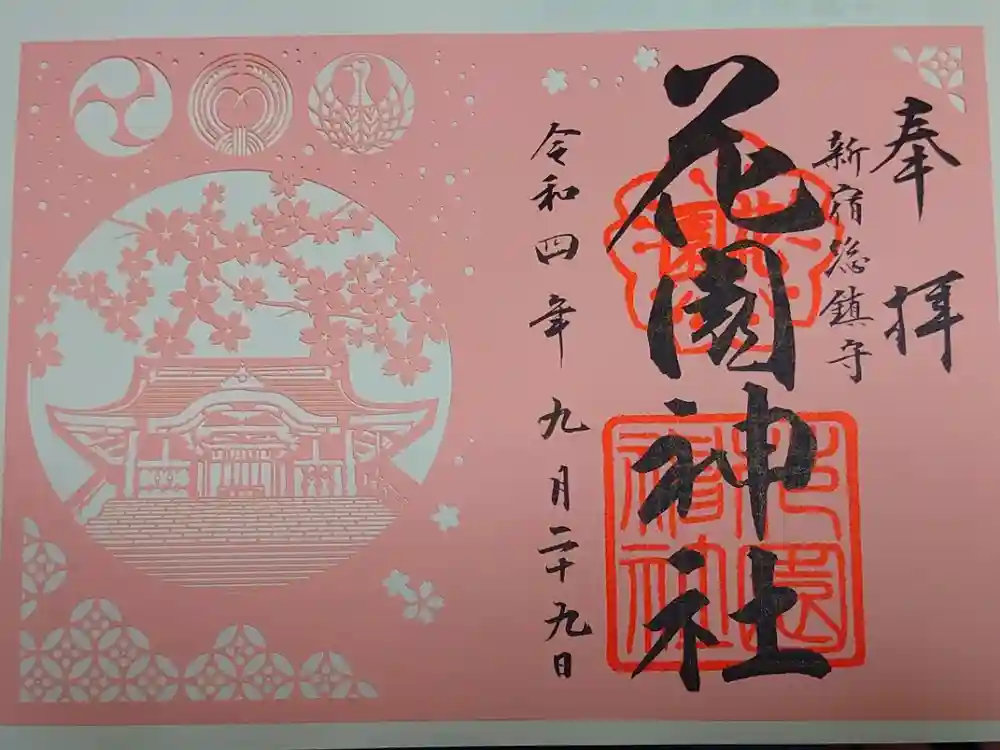 奉拝
新宿総鎮守
花園神社
令和四年九月二十九日